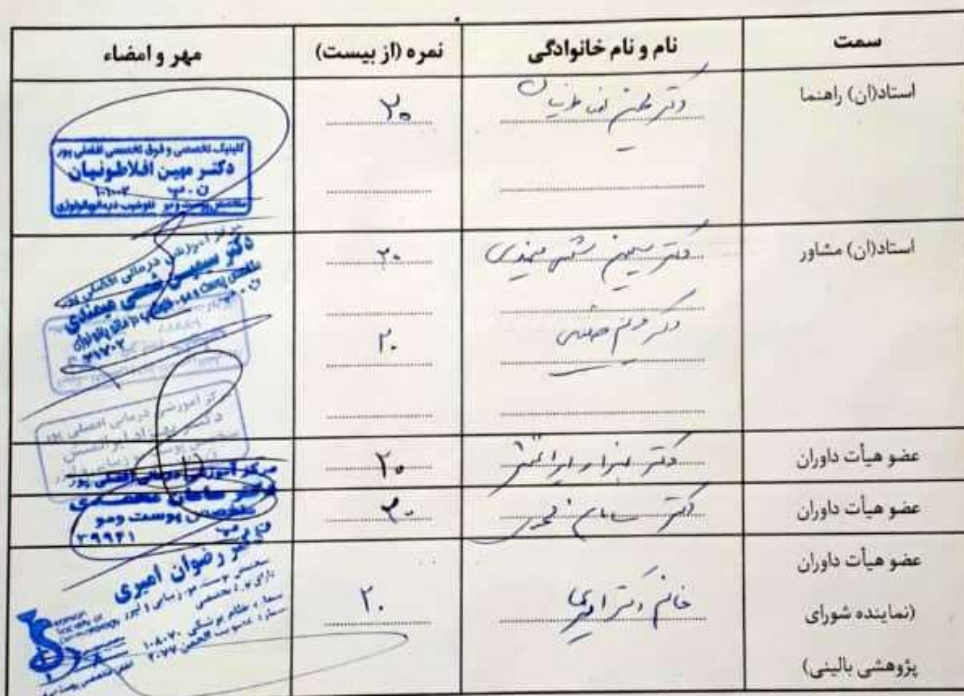 سمت	نام و نام خانوادگی	نمره (از بیست)	مهر و امضاء
استاد(ان) راهنما
دکتر مهین افلاطونیان
۲۰
کلینیک تخصصی و فوق تخصصی افضلی پور
دکتر مهین افلاطونیان
ن . پ
متخصص پوست و مو
استاد(ان) مشاور
دکتر سیمین شمسی میمندی
۲۰
مرکز آموزشی درمانی افضلی پور
دکتر سیمین شمسی میمندی
ن . پ
۳۱۷۰۲
دکتر مریم
۲۰
عضو هیأت داوران
دکتر بهزاد ایرانمنش
۲۰
مرکز آموزشی درمانی افضلی پور
دکتر بهزاد ایرانمنش
عضو هیأت داوران
دکتر سامان محمدی
۲۰
مرکز آموزشی درمانی افضلی پور
دکتر سامان محمدی
متخصص پوست ومو
۳۹۹۴۱
عضو هیأت داوران
(نماینده شورای
پژوهشی بالینی)
خانم دکتر امیری
۲۰
دکتر رضوان امیری